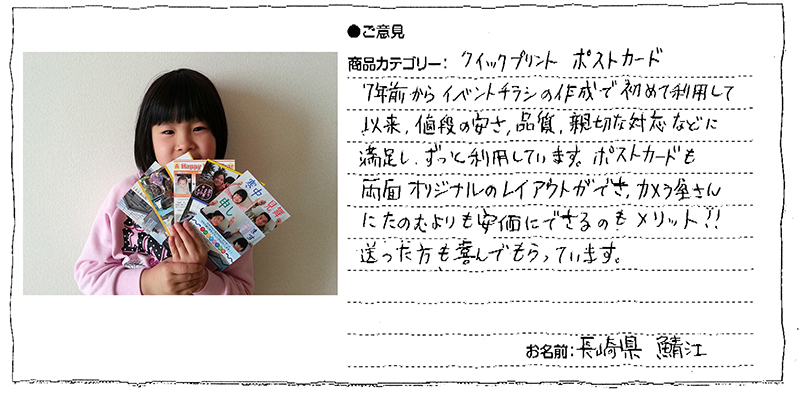 ●ご意見
商品カテゴリー: クイックプリント ポストカード
7年前からイベントチラシの作成で初めて利用して
以来、値段の安さ、品質、親切な対応などに
満足し、ずっと利用しています。ポストカードも
両面オリジナルのレイアウトができ、カメラ屋さん
にたのむよりも安価にできるのもメリット!!
送った方も喜んでもらっています。
お名前: 長崎県 鯖江
Happy
寒中
申し